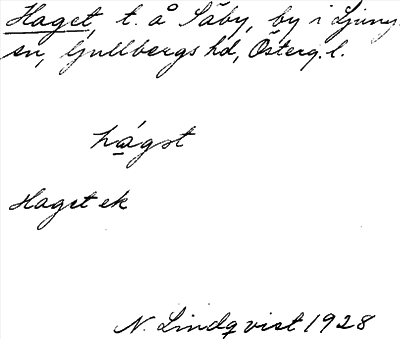 Haget, t. å Säby, by i Ljung-
sn, Gullbergs hd, Österg. l.
hágət
Haget ek
N. Lindqvist 1928